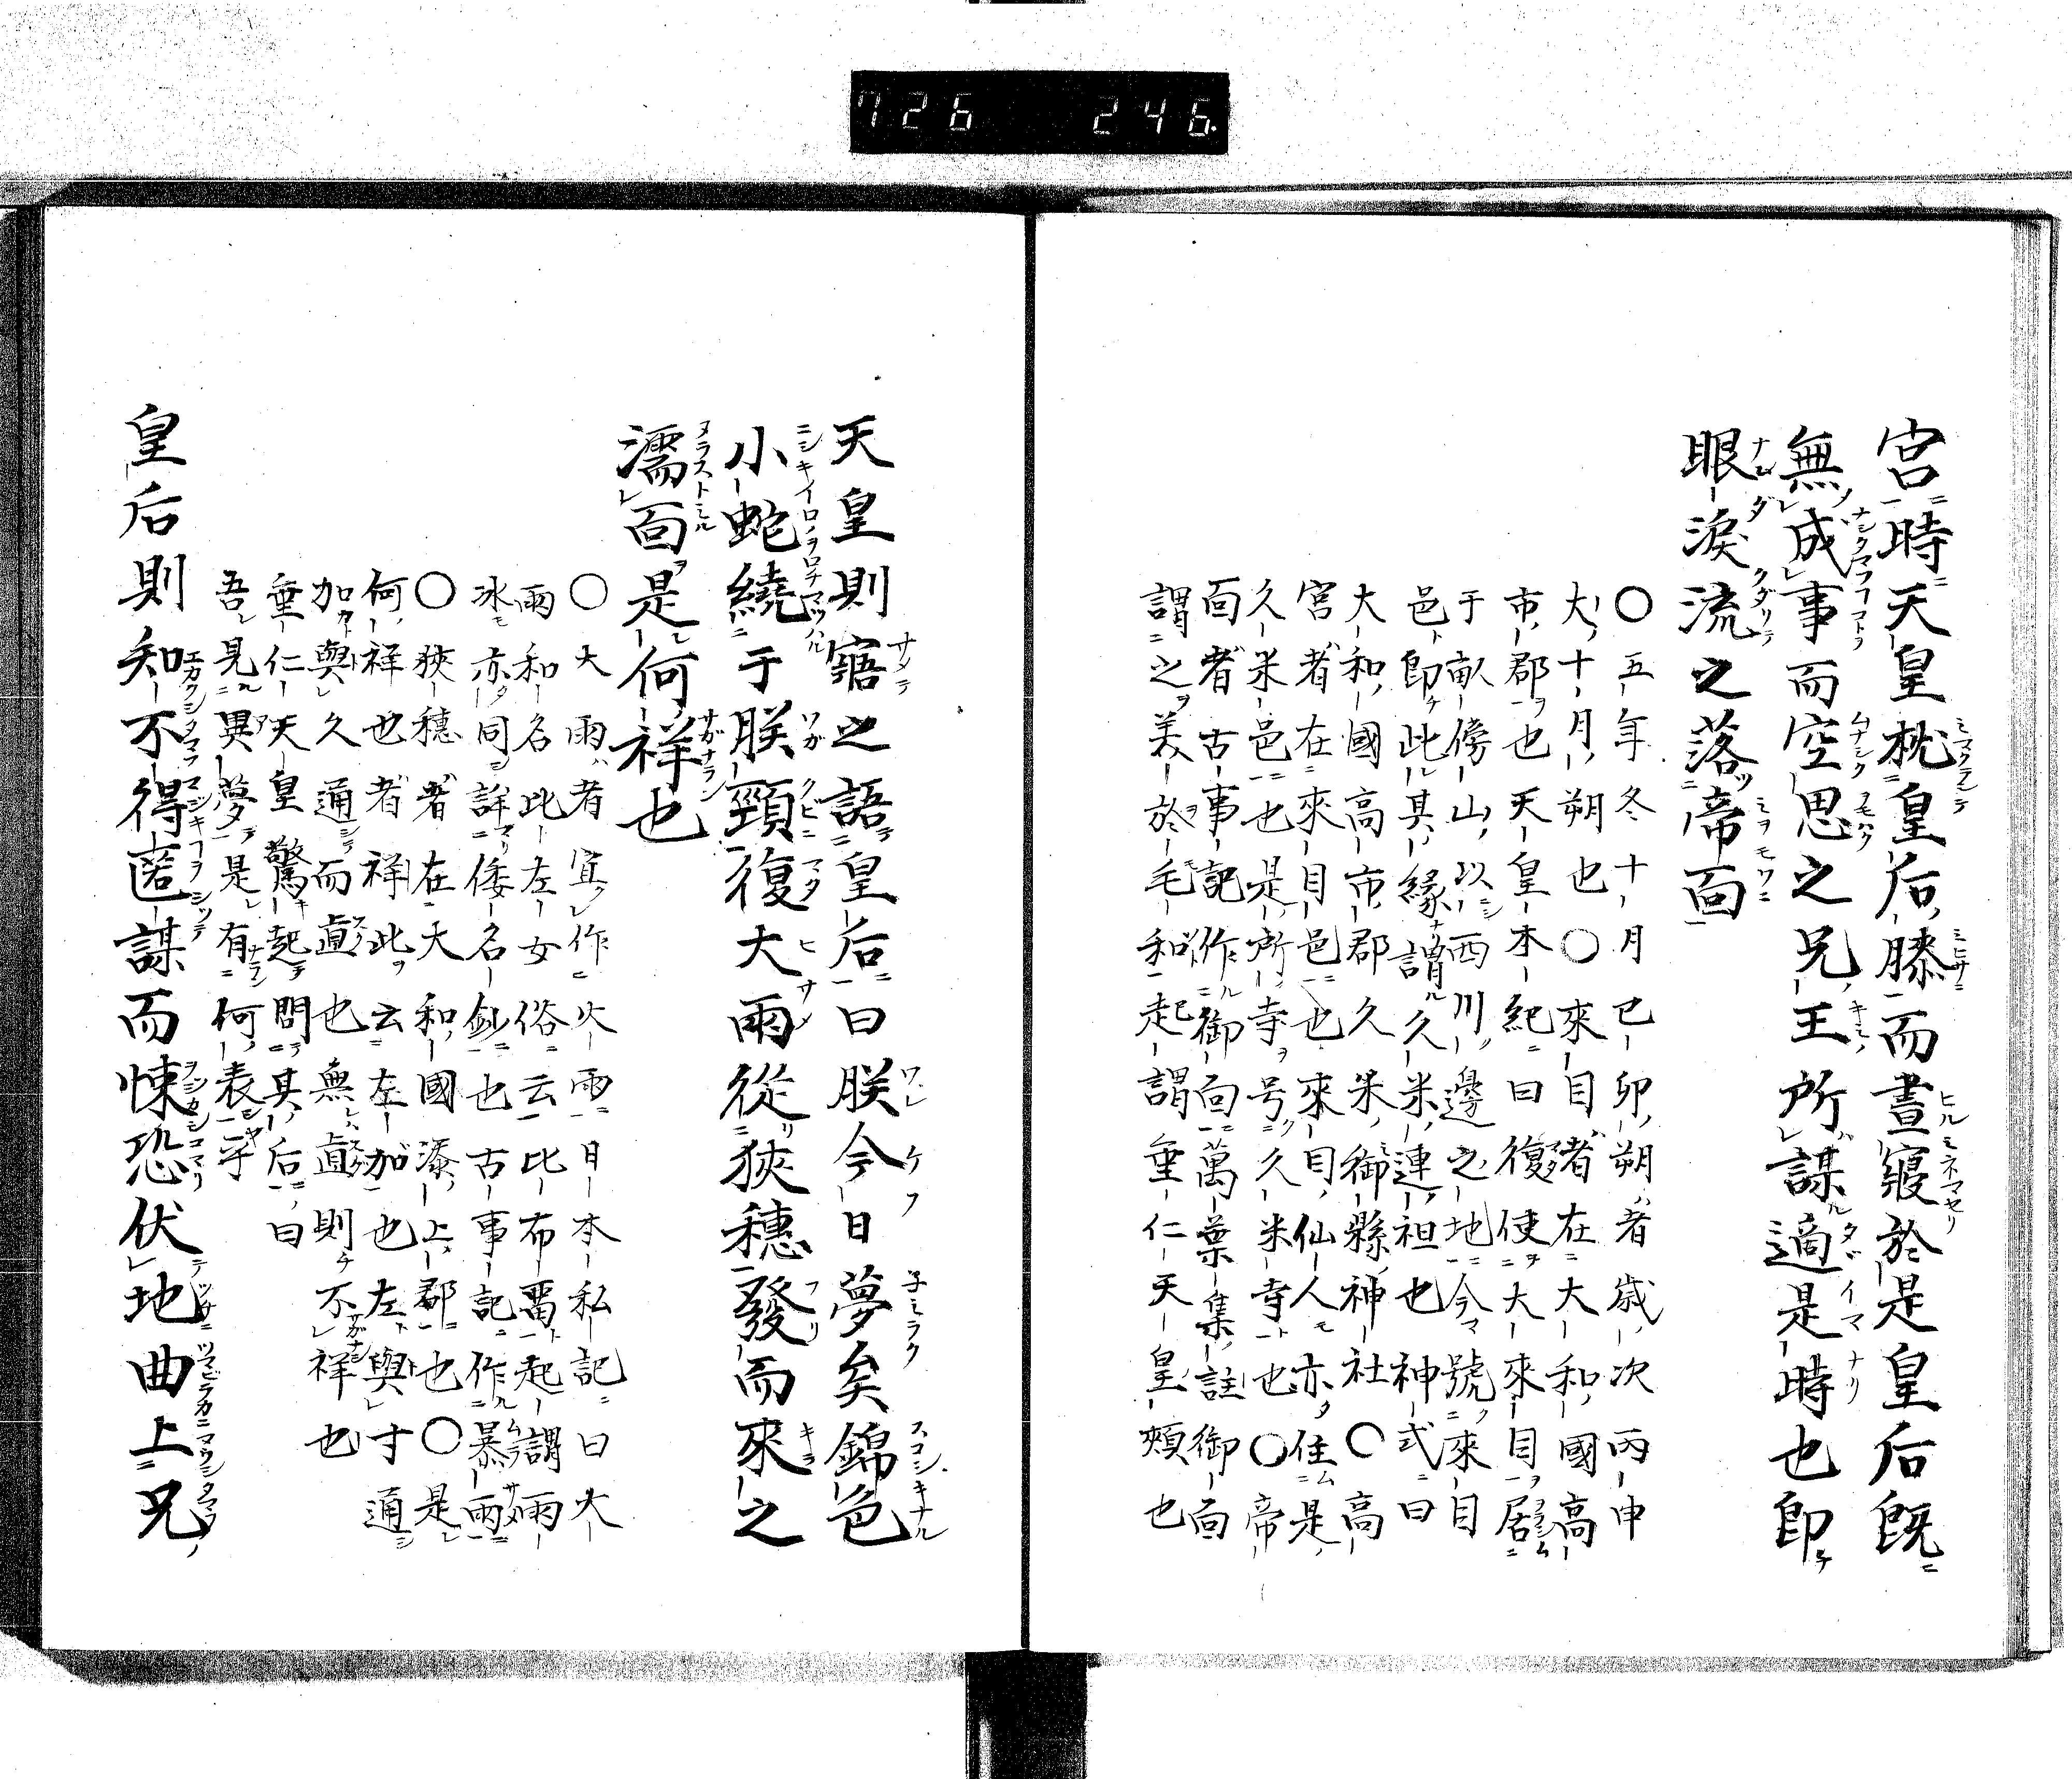 726 246
宮時天皇枕皇后膝而晝寢於是皇后既
無成事而空思之兄王所謀適是時也即
眼淚流之落帝面
〇五年冬十月己卯朔者歳次丙申
大十月朔也〇來目者在大和國高
市郡也天皇本紀曰復使大來目居
于畝傍山以西川邊之地今號來目
邑即此其縁謂久米連祖也神式曰
大和國高市郡久米御縣神社〇高
宮者在來目邑也來目仙人亦住是
久米邑也是所寺号久米寺也〇帝
面者古事記作御面萬葉集註御面
謂之美於毛和起謂垂仁天皇頰也
天皇則寤之語皇后曰朕今日夢矣錦色
小蛇繞于朕頸復大雨從狹穗發而來之
濡面是何祥也
〇大雨者宜作火雨日本私記曰火
雨和名此左女俗云比布留起謂雨
冰亦同詳倭名鈔也古事記作暴雨
〇狹穗者在大和國添上郡也〇是
何祥也者祥此云左加也左與寸通
加與久通而直也無直則不祥也
垂仁天皇驚起問其后曰
吾見異夢是有何表乎
皇后則知不得匿謀而悚恐伏地曲上兄